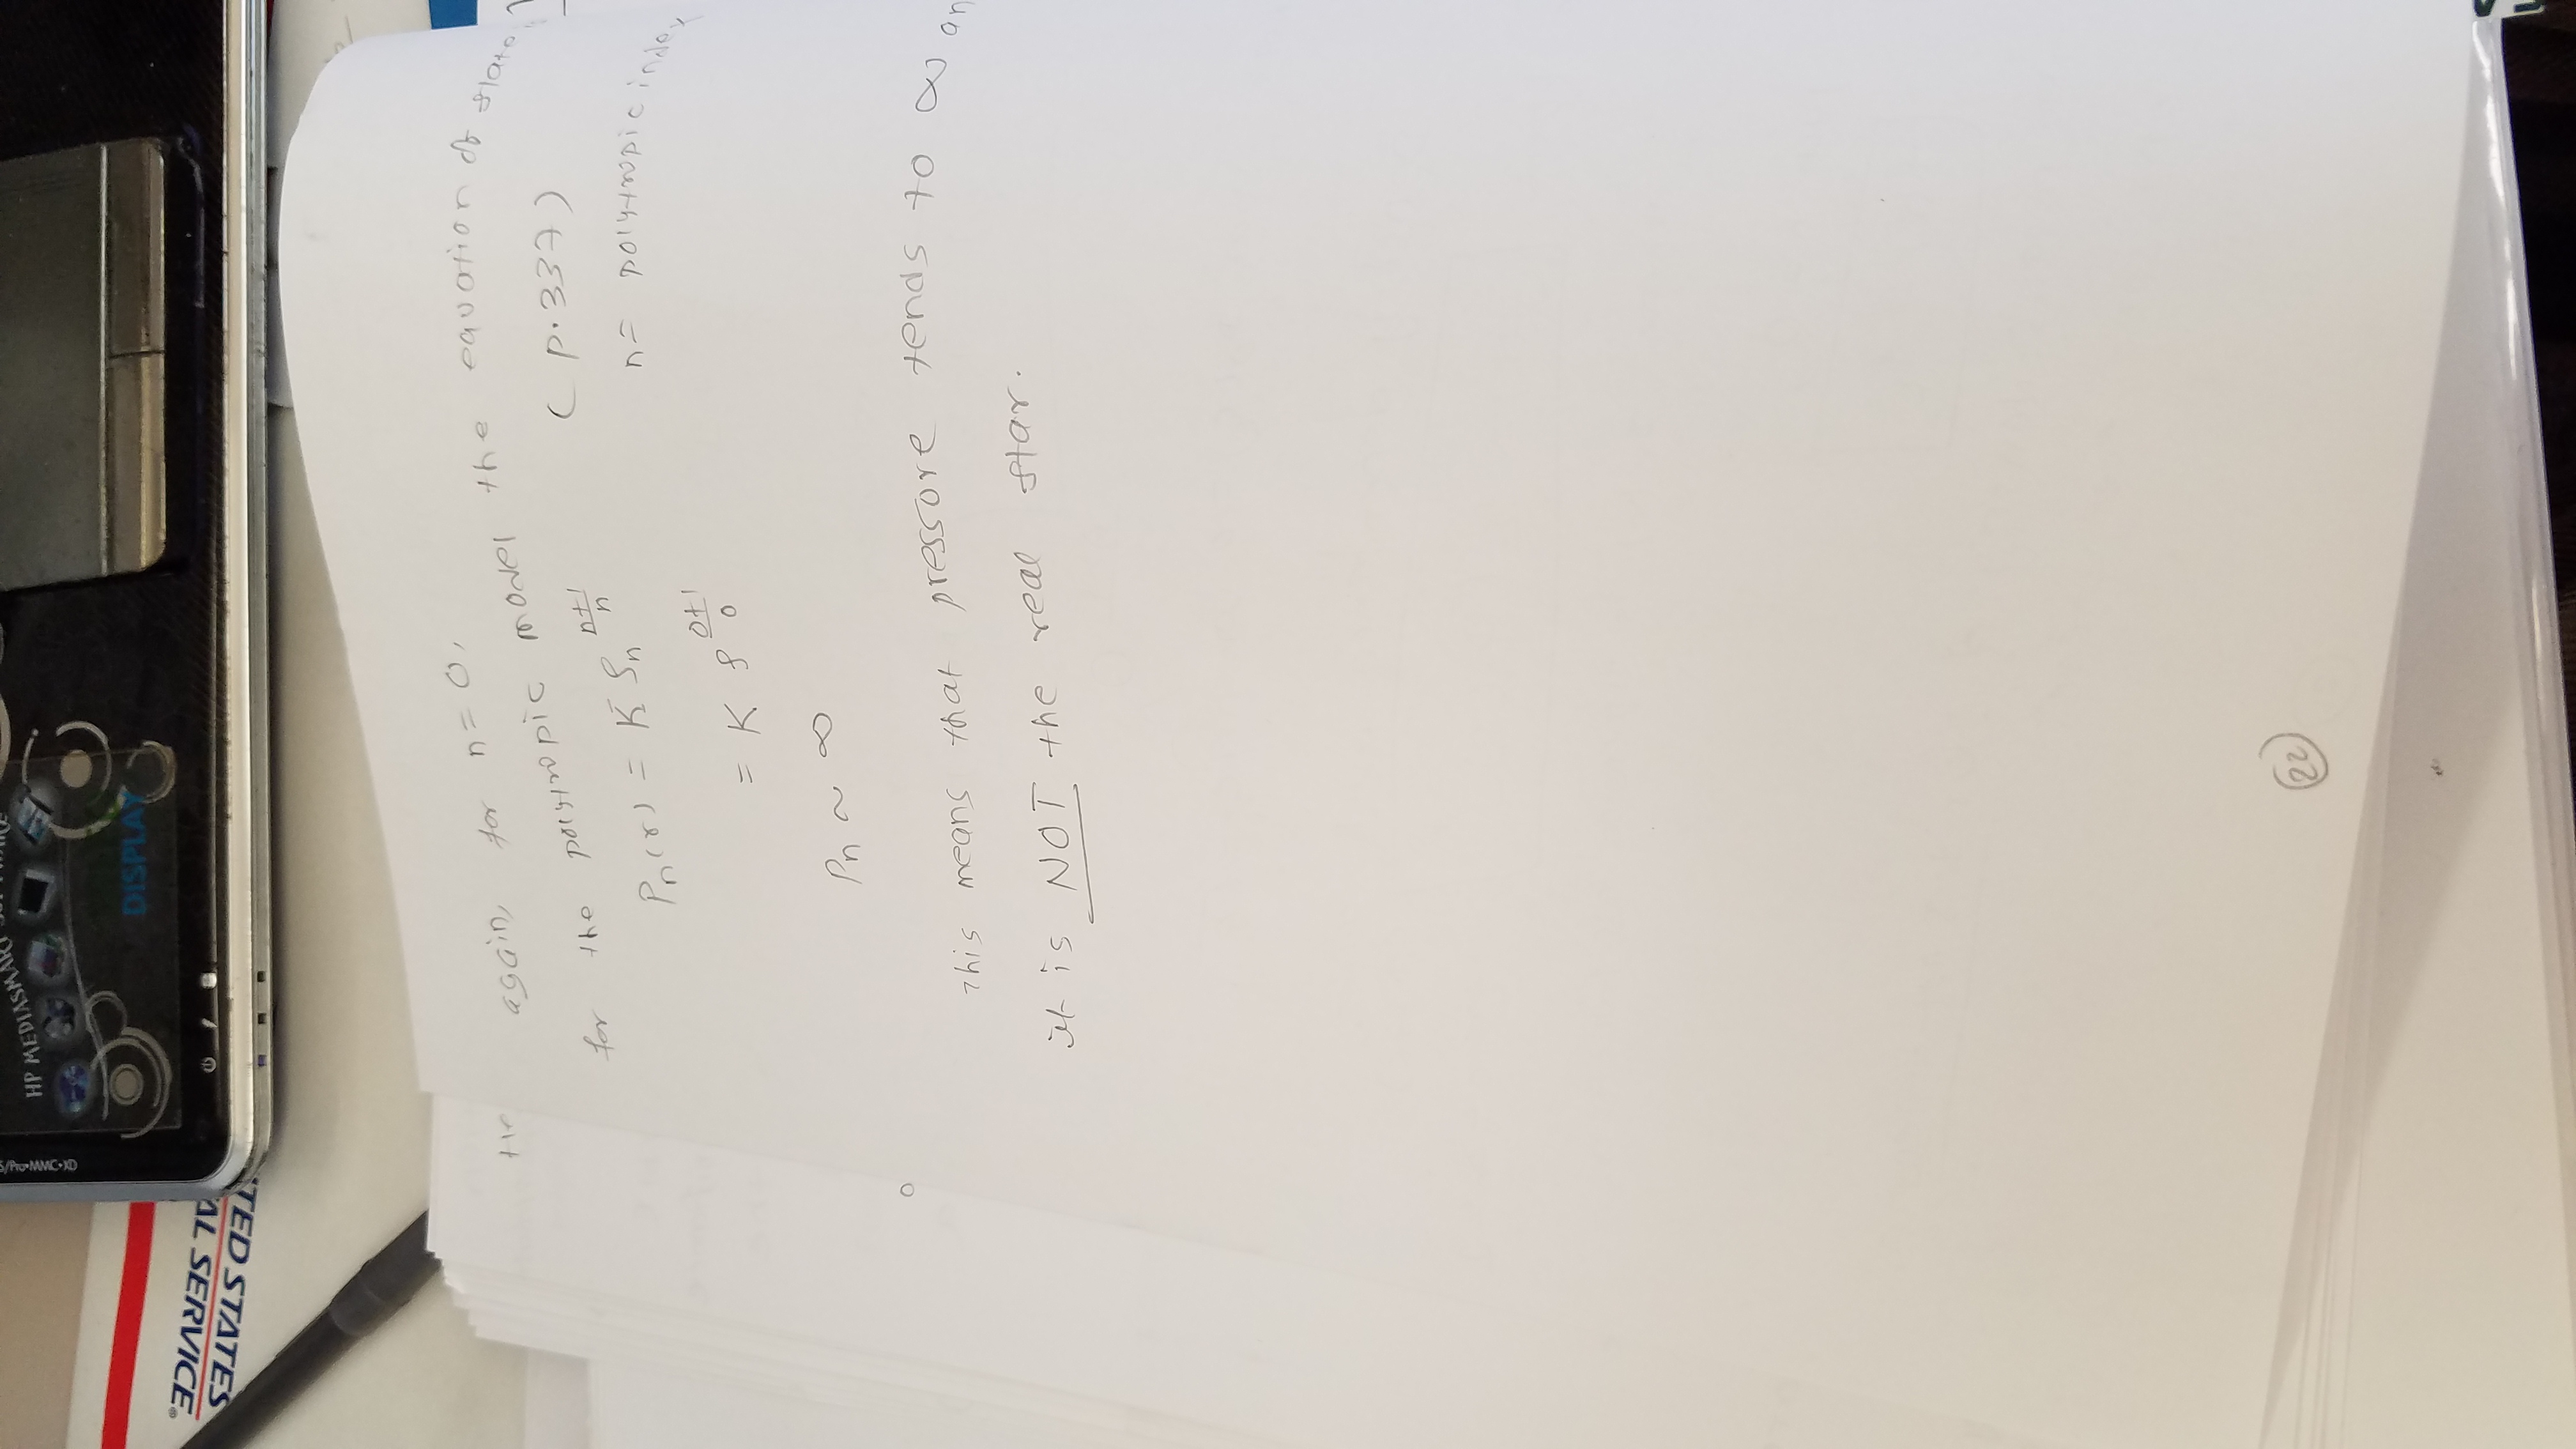 HP MEDIASMART SOFTWARE
DISPLAY
TED STATES
AL SERVICE®
the
again, for n = 0,
for the polytropic model the equation of state
(p.337)
Pn(r) = K ρn^(n+1)/n
n = polytropic index
= K ρ^(0+1)/0
Pn ~ ∞
This means that pressore tends to ∞ an
it is NOT the real star.
22